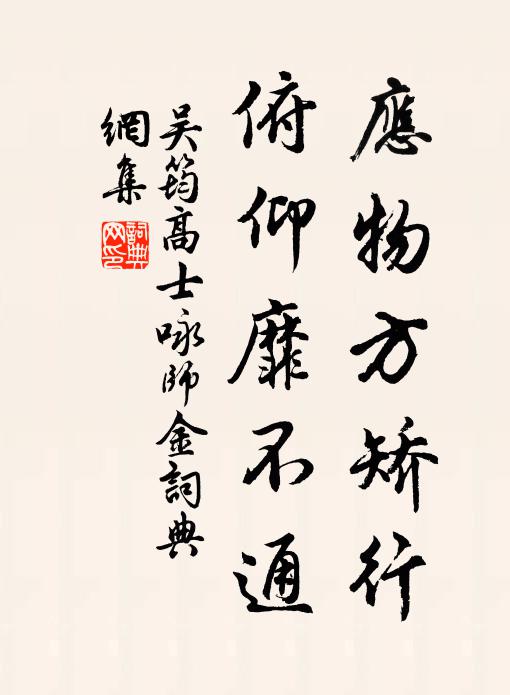 應物方矯行
俯仰靡不通
吴筠高士咏師金詞典
網集
詞典
网印